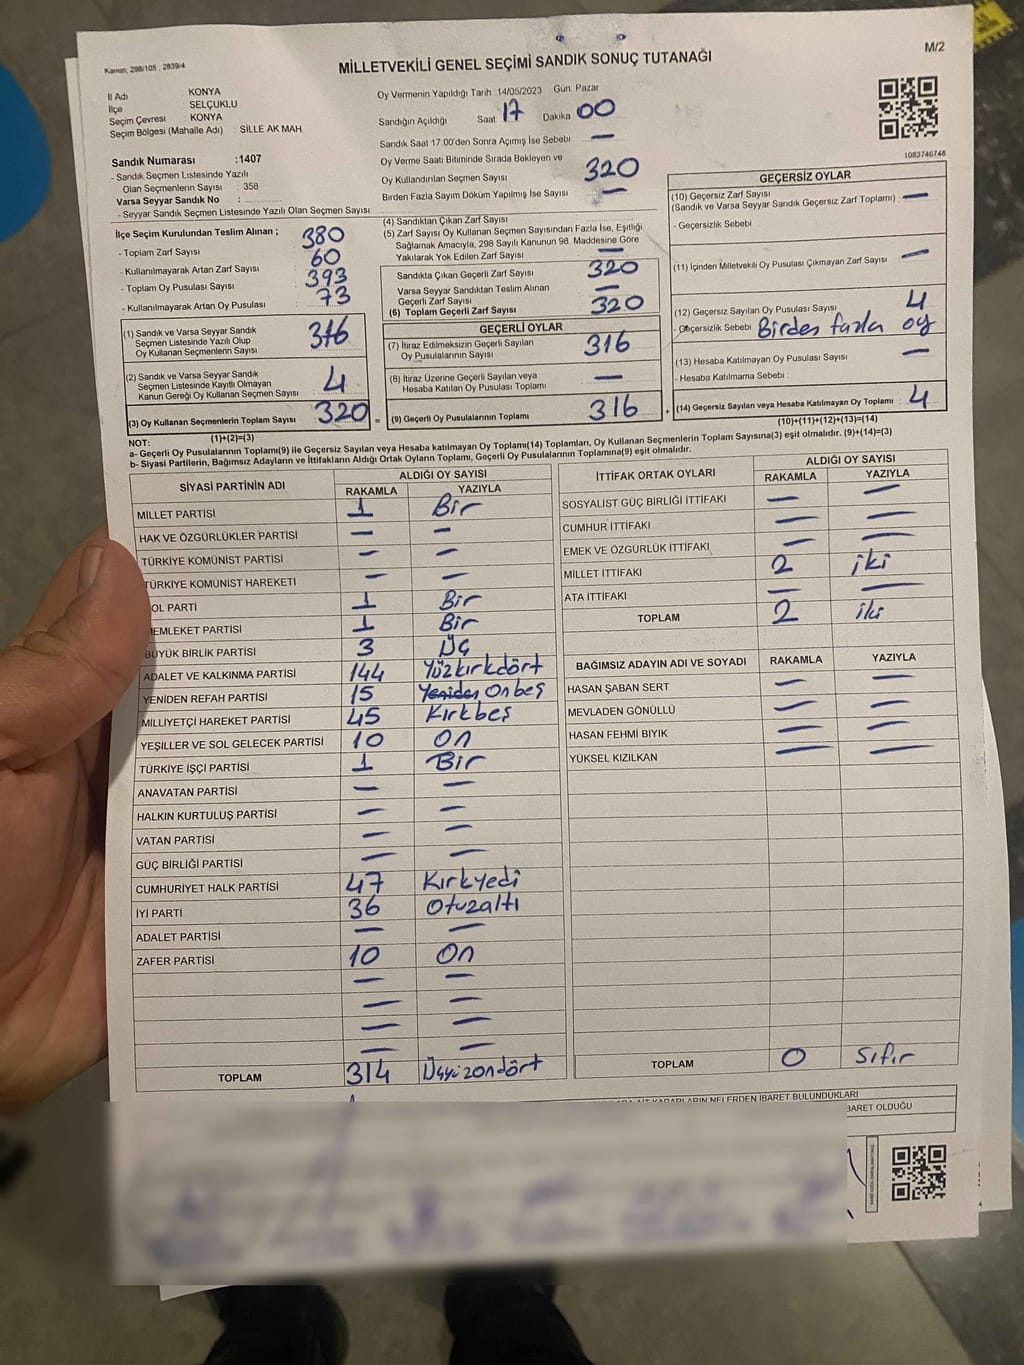 Kanun: 298/105 , 2839/4
MİLLETVEKİLİ GENEL SEÇİMİ SANDIK SONUÇ TUTANAĞI
M/2
İl Adı KONYA
İlçe SELÇUKLU
Seçim Çevresi KONYA
Seçim Bölgesi (Mahalle Adı) SİLLE AK MAH.
Sandık Numarası :1407
- Sandık Seçmen Listesinde Yazılı
Olan Seçmenlerin Sayısı : 358
Varsa Seyyar Sandık No :
- Seyyar Sandık Seçmen Listesinde Yazılı Olan Seçmen Sayısı
İlçe Seçim Kurulundan Teslim Alınan ;
- Toplam Zarf Sayısı 380
- Kullanılmayarak Artan Zarf Sayısı 60
- Toplam Oy Pusulası Sayısı 393
- Kullanılmayarak Artan Oy Pusulası 73
(1) Sandık ve Varsa Seyyar Sandık
Seçmen Listesinde Yazılı Olup
Oy Kullanan Seçmenlerin Sayısı 316
(2) Sandık ve Varsa Seyyar Sandık
Seçmen Listesinde Kayıtlı Olmayan
Kanun Gereği Oy Kullanan Seçmen Sayısı 4
(3) Oy Kullanan Seçmenlerin Toplam Sayısı 320 =
(1)+(2)=(3)
Oy Vermenin Yapıldığı Tarih :14/05/2023 Gün: Pazar
Sandığın Açıldığı Saat 17 Dakika 00
Sandık Saat 17:00'den Sonra Açılmış İse Sebebi —
Oy Verme Saati Bitiminde Sırada Bekleyen ve
Oy Kullandırılan Seçmen Sayısı 320
Birden Fazla Sayım Döküm Yapılmış İse Sayısı —
(4) Sandıktan Çıkan Zarf Sayısı
(5) Zarf Sayısı Oy Kullanan Seçmen Sayısından Fazla İse, Eşitliği
Sağlamak Amacıyla, 298 Sayılı Kanunun 98. Maddesine Göre
Yakılarak Yok Edilen Zarf Sayısı —
Sandıkta Çıkan Geçerli Zarf Sayısı 320
Varsa Seyyar Sandıktan Teslim Alınan
Geçerli Zarf Sayısı —
(6) Toplam Geçerli Zarf Sayısı 320
GEÇERLİ OYLAR
(7) İtiraz Edilmeksizin Geçerli Sayılan
Oy Pusulalarının Sayısı 316
(8) İtiraz Üzerine Geçerli Sayılan ve
Hesaba Katılan Oy Pusulası Toplamı —
(9) Geçerli Oy Pusulalarının Toplamı 316 +
1083746748
GEÇERSİZ OYLAR
(10) Geçersiz Zarf Sayısı
(Sandık ve Varsa Seyyar Sandık Geçersiz Zarf Toplamı) : —
- Geçersizlik Sebebi
(11) İçinden Milletvekili Oy Pusulası Çıkmayan Zarf Sayısı —
(12) Geçersiz Sayılan Oy Pusulası Sayısı 4
- Geçersizlik Sebebi Birden fazla oy
(13) Hesaba Katılmayan Oy Pusulası Sayısı —
- Hesaba Katılmama Sebebi :
(14) Geçersiz Sayılan veya Hesaba Katılmayan Oy Toplamı : 4
(10)+(11)+(12)+(13)=(14)
NOT:
a- Geçerli Oy Pusulalarının Toplamı(9) ile Geçersiz Sayılan veya Hesaba katılmayan Oy Toplamı(14) Toplamları, Oy Kullanan Seçmenlerin Toplam Sayısına(3) eşit olmalıdır. (9)+(14)=(3)
b- Siyasi Partilerin, Bağımsız Adayların ve İttifakların Aldığı Ortak Oyların Toplamı, Geçerli Oy Pusulalarının Toplamına(9) eşit olmalıdır.
SİYASİ PARTİNİN ADI ALDIĞI OY SAYISI
RAKAMLA YAZIYLA
MİLLET PARTİSİ 1 Bir
HAK VE ÖZGÜRLÜKLER PARTİSİ — —
TÜRKİYE KOMÜNİST PARTİSİ — —
TÜRKİYE KOMÜNİST HAREKETİ — —
OL PARTİ 1 Bir
EMLEKET PARTİSİ 1 Bir
BÜYÜK BİRLİK PARTİSİ 3 Üç
ADALET VE KALKINMA PARTİSİ 144 Yüzkırkdört
YENİDEN REFAH PARTİSİ 15 Yeniden Onbeş
MİLLİYETÇİ HAREKET PARTİSİ 45 Kırkbeş
YEŞİLLER VE SOL GELECEK PARTİSİ 10 On
TÜRKİYE İŞÇİ PARTİSİ 1 Bir
ANAVATAN PARTİSİ — —
HALKIN KURTULUŞ PARTİSİ — —
VATAN PARTİSİ — —
GÜÇ BİRLİĞİ PARTİSİ — —
CUMHURİYET HALK PARTİSİ 47 Kırkyedi
İYİ PARTİ 36 Otuzaltı
ADALET PARTİSİ — —
ZAFER PARTİSİ 10 On
— —
— —
— —
— —
TOPLAM 314 Üçyüzondört
İTTİFAK ORTAK OYLARI ALDIĞI OY SAYISI
RAKAMLA YAZIYLA
SOSYALİST GÜÇ BİRLİĞİ İTTİFAKI — —
CUMHUR İTTİFAKI — —
EMEK VE ÖZGÜRLÜK İTTİFAKI — —
MİLLET İTTİFAKI 2 iki
ATA İTTİFAKI — —
TOPLAM 2 iki
BAĞIMSIZ ADAYIN ADI VE SOYADI RAKAMLA YAZIYLA
HASAN ŞABAN SERT — —
MEVLADEN GÖNÜLLÜ — —
HASAN FEHMİ BIYIK — —
YÜKSEL KIZILKAN — —
TOPLAM 0 Sıfır
NELERDEN İBARET BULUNDUKLARI
BARET OLDUĞU